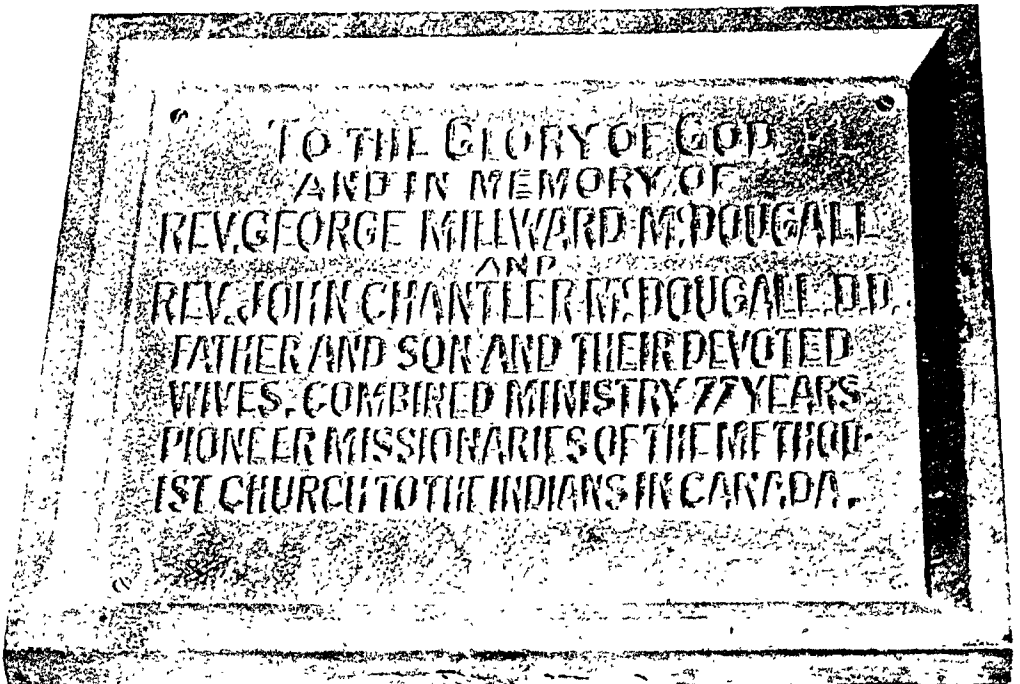 TO THE GLORY OF GOD
AND IN MEMORY OF
REV. GEORGE MILLWARD McDOUGALL
AND
REV. JOHN CHANTLER McDOUGALL. D.D.
FATHER AND SON AND THEIR DEVOTED
WIVES. COMBINED MINISTRY 77 YEARS
PIONEER MISSIONARIES OF THE METHOD-
IST CHURCH TO THE INDIANS IN CANADA.